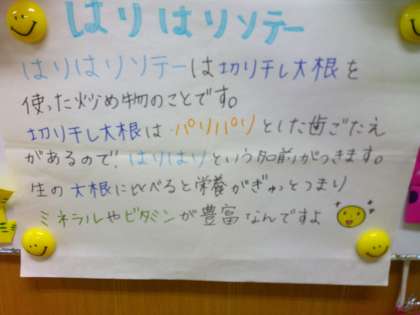 はりはりソテー
はりはりソテーは切り干し大根を
使った炒め物のことです。
切り干し大根はパリパリとした歯ごたえ
があるので、はりはりという名前がつきます。
生の大根に比べると栄養がぎゅっとつまり
ミネラルやビタミンが豊富なんですよ